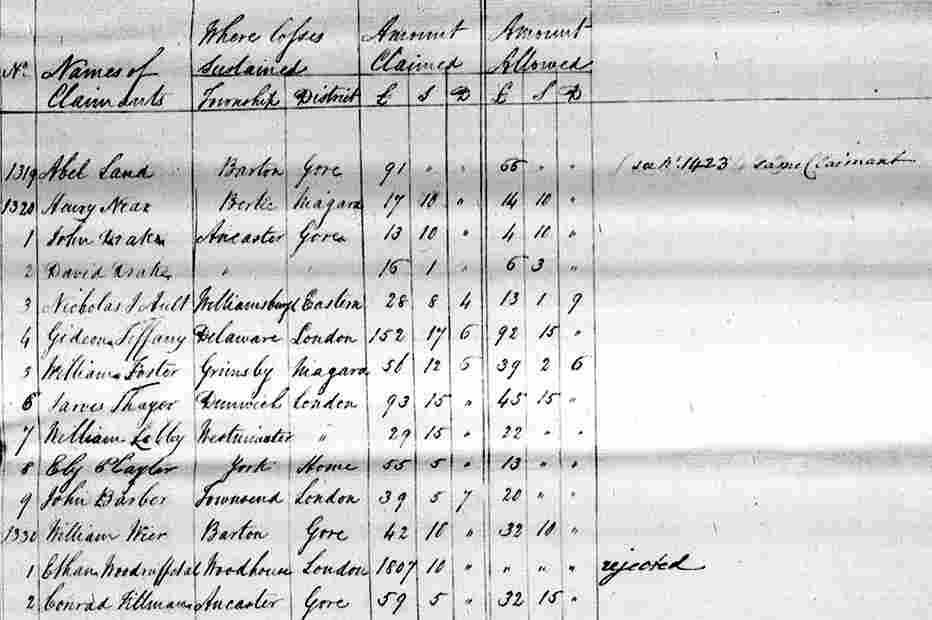 Where losses Amount Amount
No Names of Sustained Claimed Allowed
Claimants Township District £ S D £ S D
1319 Abel Land Barton Gore 91 " " 55 " " 1423 same Claimant
1320 Henry Near Bertie Niagara 17 10 " 14 10 "
1 John Drake Ancaster Gore 13 10 " 4 10 "
2 David Drake " " 16 1 " 6 3 "
3 Nicholas J Ault Williamsburgh Eastern 28 8 4 13 1 9
4 Gideon Tiffany Delaware London 152 17 6 92 15 "
5 William Foster Grimsby Niagara 56 12 6 39 2 6
6 James Thayer Dunwich London 93 15 " 45 15 "
7 William Westminster " 29 15 " 22 " "
8 Ely Playter York Home 55 5 " 13 " "
9 John Barber Townsend London 39 5 7 20 " "
1330 William Wier Barton Gore 42 10 " 32 10 "
1 Ethan Woodhouse London 1807 10 " " " " rejected
2 Conrad Fillman Ancaster Gore 59 5 " 32 15 "